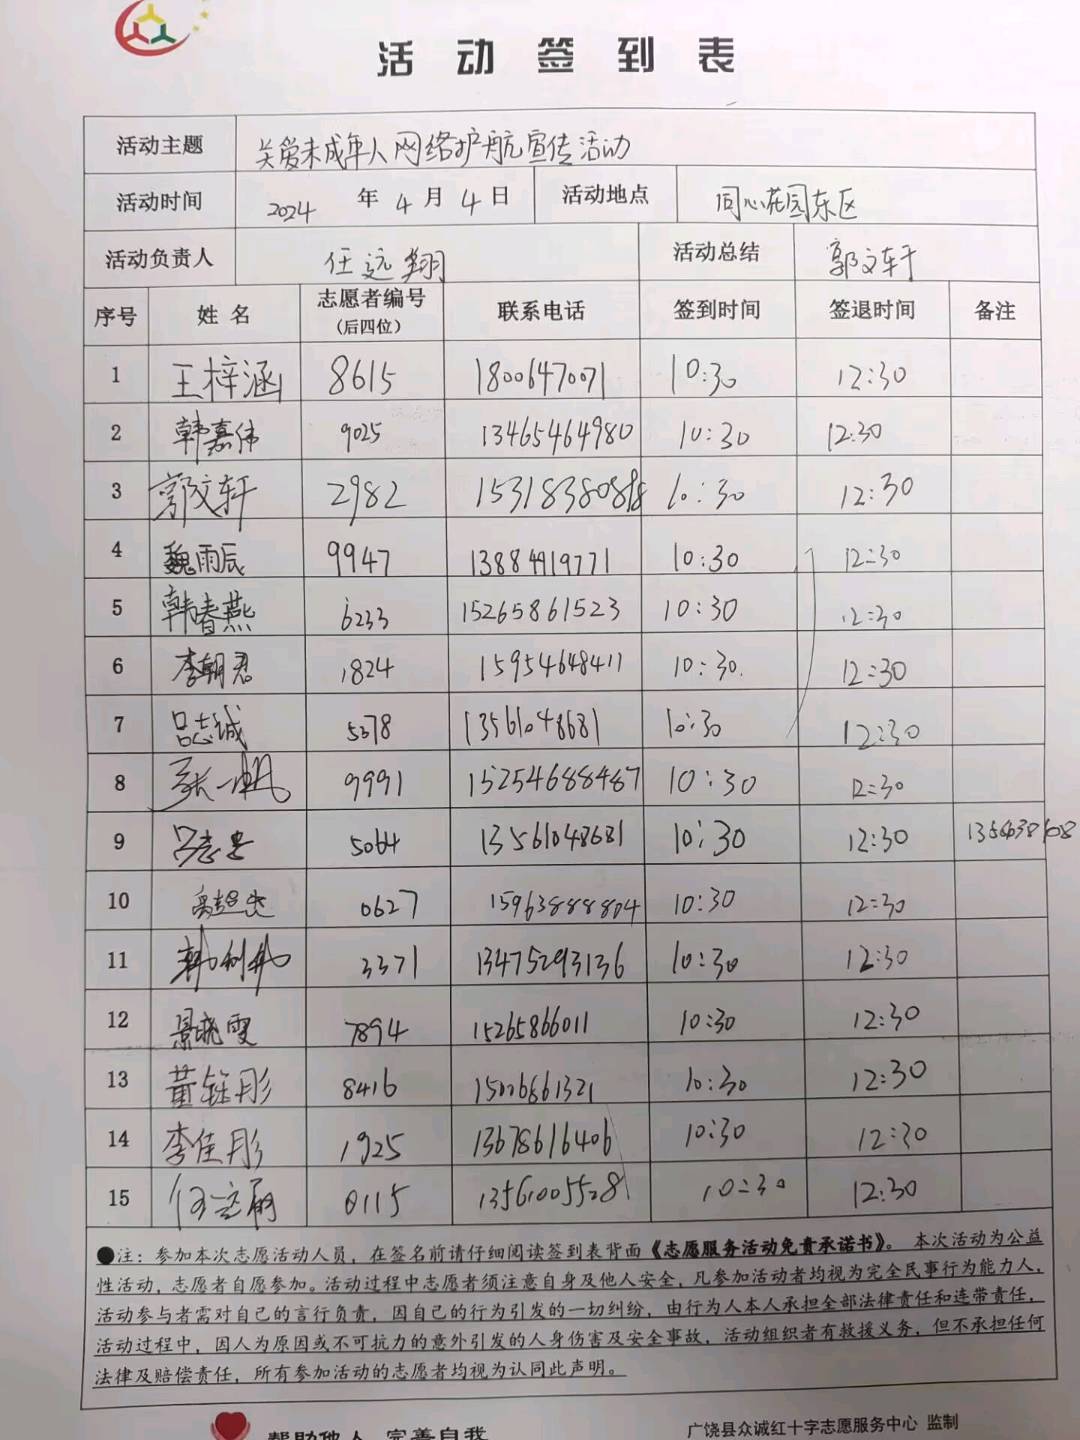 活动签到表
活动主题 关爱未成年人网络护航宣传活动
活动时间 2024年4月4日 活动地点 同心花园东区
活动负责人 任远翔 活动总结 郭文轩
序号 姓名 志愿者编号(后四位) 联系电话 签到时间 签退时间 备注
1 王梓涵 8615 18006470071 10:30 12:30
2 韩嘉伟 9025 13465464980 10:30 12:30
3 郭文轩 2982 10:30 12:30
4 魏雨辰 9947 13884919771 10:30 12:30
5 韩春燕 6233 15265861523 10:30 12:30
6 李朝君 1824 15954648411 10:30 12:30
7 吕志诚 5378 13561048681 10:30 12:30
8 张一帆 9991 15254688487 10:30 12:30
9 吕志忠 5064 13561048681 10:30 12:30
10 0627 15963888804 10:30 12:30
11 韩利 3371 13475293136 10:30 12:30
12 景晓雯 7894 15265866011 10:30 12:30
13 董钰彤 8416 10:30 12:30
14 李佳彤 1925 13678616406 10:30 12:30
15 0115 13561005528 10:30 12:30
●注：参加本次志愿活动人员，在签名前请仔细阅读签到表背面《志愿服务活动免责承诺书》。本次活动为公益
性活动，志愿者自愿参加。活动过程中志愿者须注意自身及他人安全，凡参加活动者均视为完全民事行为能力人，
活动参与者需对自己的言行负责，因自己的行为引发的一切纠纷，由行为人本人承担全部法律责任和连带责任，
活动过程中，因人为原因或不可抗力的意外引发的人身伤害及安全事故，活动组织者有救援义务，但不承担任何
法律及赔偿责任，所有参加活动的志愿者均视为认同此声明。
帮助他人 完善自我
广饶县众诚红十字志愿服务中心 监制